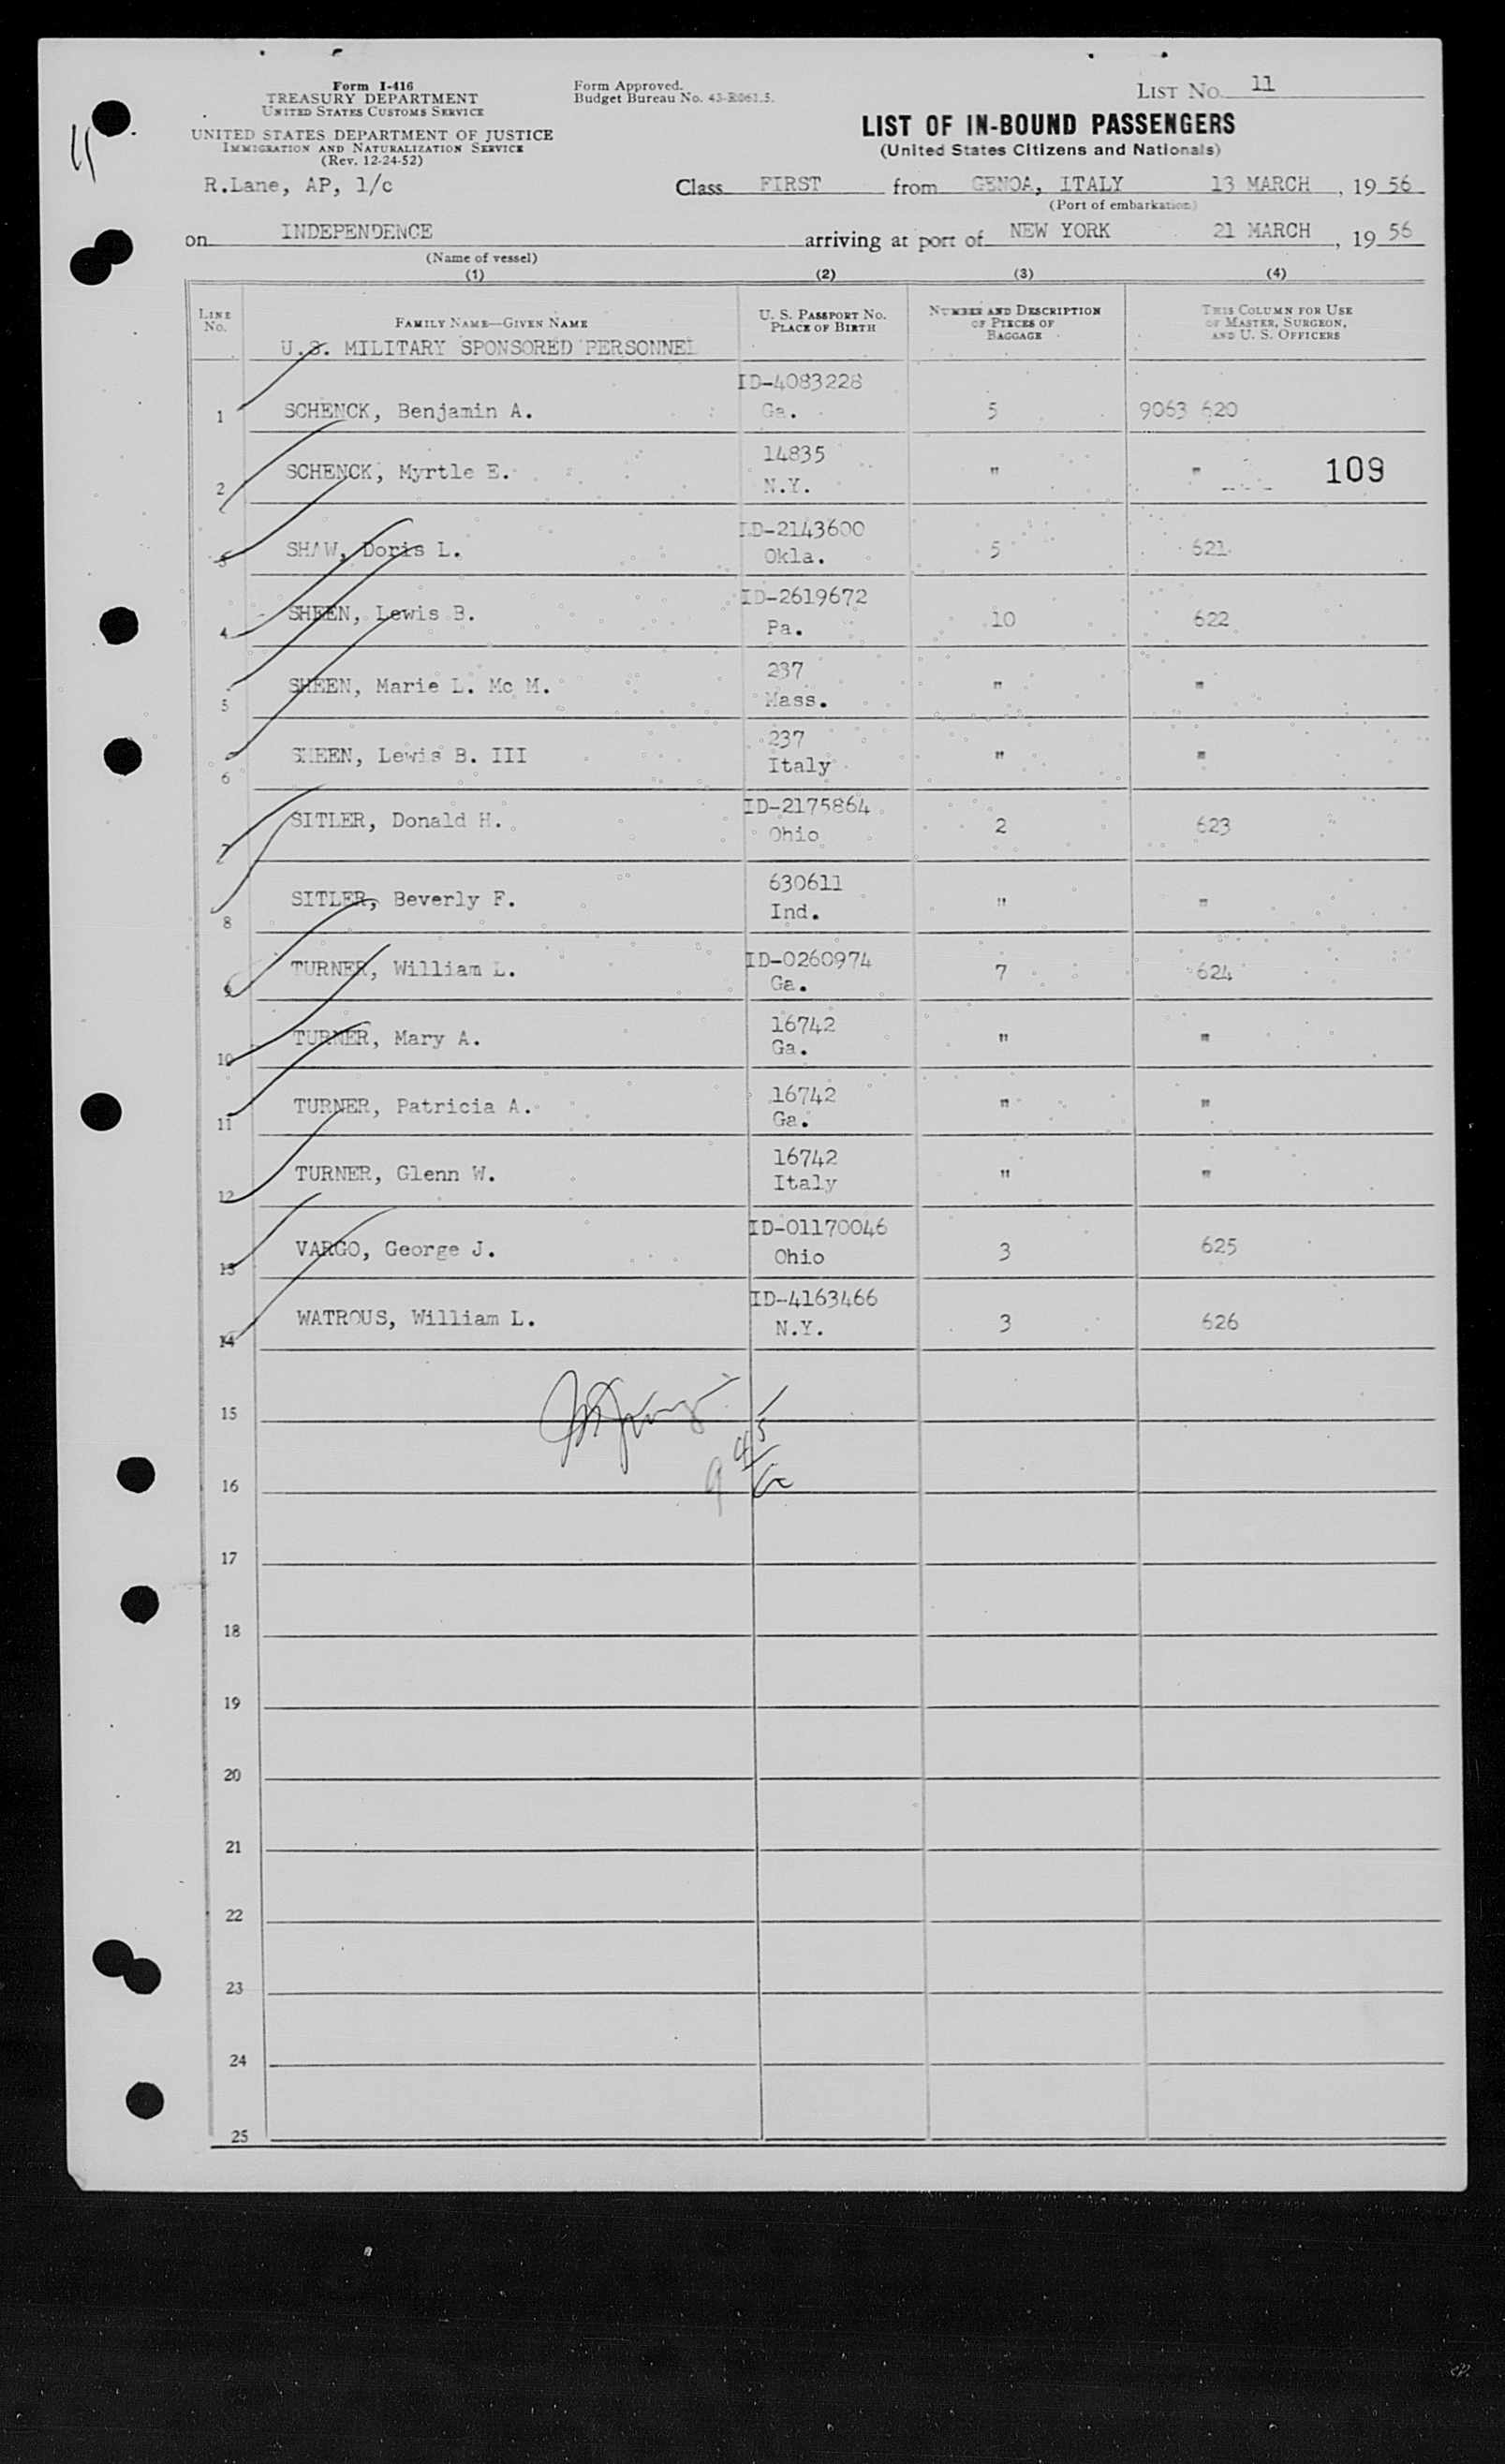 Form I-416
TREASURY DEPARTMENT
UNITED STATES CUSTOMS SERVICE
UNITED STATES DEPARTMENT OF JUSTICE
IMMIGRATION AND NATURALIZATION SERVICE
(Rev. 12-24-52)
Form Approved.
Budget Bureau No. 43-R061.5.
LIST NO. 11
LIST OF IN-BOUND PASSENGERS
(United States Citizens and Nationals)
R.Lane, AP, 1/c
Class FIRST from GENOA, ITALY 13 MARCH, 1956
(Port of embarkation)
on INDEPENDENCE arriving at port of NEW YORK 21 MARCH, 1956
(Name of vessel)
(1) (2) (3) (4)
LINE NO. FAMILY NAME—GIVEN NAME U. S. PASSPORT NO. PLACE OF BIRTH NUMBER AND DESCRIPTION OF PIECES OF BAGGAGE THIS COLUMN FOR USE OF MASTER, SURGEON, AND U. S. OFFICERS
U.S. MILITARY SPONSORED PERSONNEL
1 SCHENCK, Benjamin A. ID-4083228 Ga. 5 9063 620
2 SCHENCK, Myrtle E. 14835 N.Y. " " 109
3 SHAW, Doris L. ID-2143600 Okla. 5 621
4 SHEEN, Lewis B. ID-2619672 Pa. 10 622
5 SHEEN, Marie L. Mc M. 237 Mass. " "
6 SHEEN, Lewis B. III 237 Italy " "
7 SITLER, Donald H. ID-2175864 Ohio 2 623
8 SITLER, Beverly F. 630611 Ind. " "
9 TURNER, William L. ID-0260974 Ga. 7 624
10 TURNER, Mary A. 16742 Ga. " "
11 TURNER, Patricia A. 16742 Ga. " "
12 TURNER, Glenn W. 16742 Italy " "
13 VARGO, George J. ID-01170046 Ohio 3 625
14 WATROUS, William L. ID-4163466 N.Y. 3 626
15
16
17
18
19
20
21
22
23
24
25